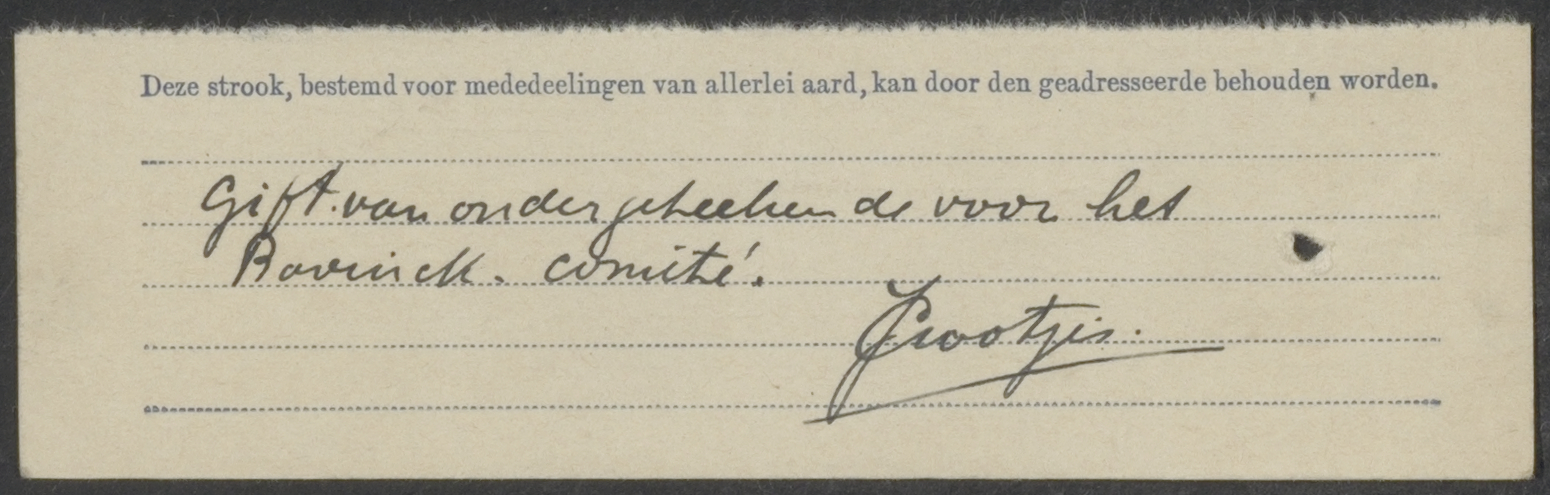 Deze strook, bestemd voor mededeelingen van allerlei aard, kan door den geadresseerde behouden worden.
Gift van ondergeteekende voor het
Bavinck- comité.
Grootjes.